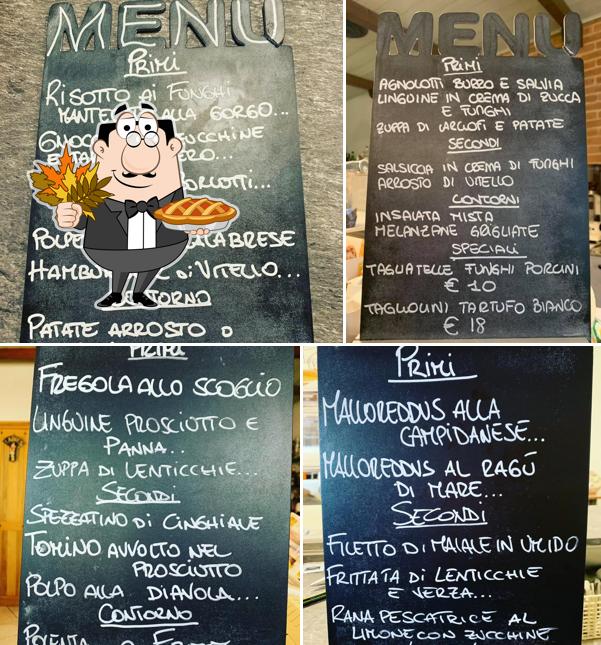 MENU
PRIMI
RISOTTO AI FUNGHI
MANTECATO ALLA GORGO...
ZUCCHINE
POLPE CALABRESE
HAMBUR DI VITELLO...
PATATE ARROSTO O
MENU
PRIMI
AGNOLOTTI BURRO E SALVIA
LINGUINE IN CREMA DI ZUCCA
E FUNGHI
ZUPPA DI CARCIOFI E PATATE
SECONDI
SALSICCIA IN CREMA DI FUNGHI
ARROSTO DI VITELLO
CONTORNI
INSALATA MISTA
MELANZANE GRIGLIATE
SPECIALI
TAGLIATELLE FUNGHI PORCINI
€ 10
TAGLIOLINI TARTUFO BIANCO
€ 18
PRIMI
FREGOLA ALLO SCOGLIO
LINGUINE PROSCIUTTO E
PANNA..
ZUPPA DI LENTICCHIE...
SECONDI
SPEZZATINO DI CINGHIALE
TOMINO AVVOLTO NEL
PROSCIUTTO
POLPO ALLA DIAVOLA...
CONTORNO
POLENTA
PRIMI
MALLOREDDUS ALLA
CAMPIDANESE...
MALLOREDDUS AL RAGÙ
DI MARE...
SECONDI
FILETTO DI MAIALE IN UMIDO
FRITTATA DI LENTICCHIE
E VERZA...
RANA PESCATRICE AL
LIMONE CON ZUCCHINE